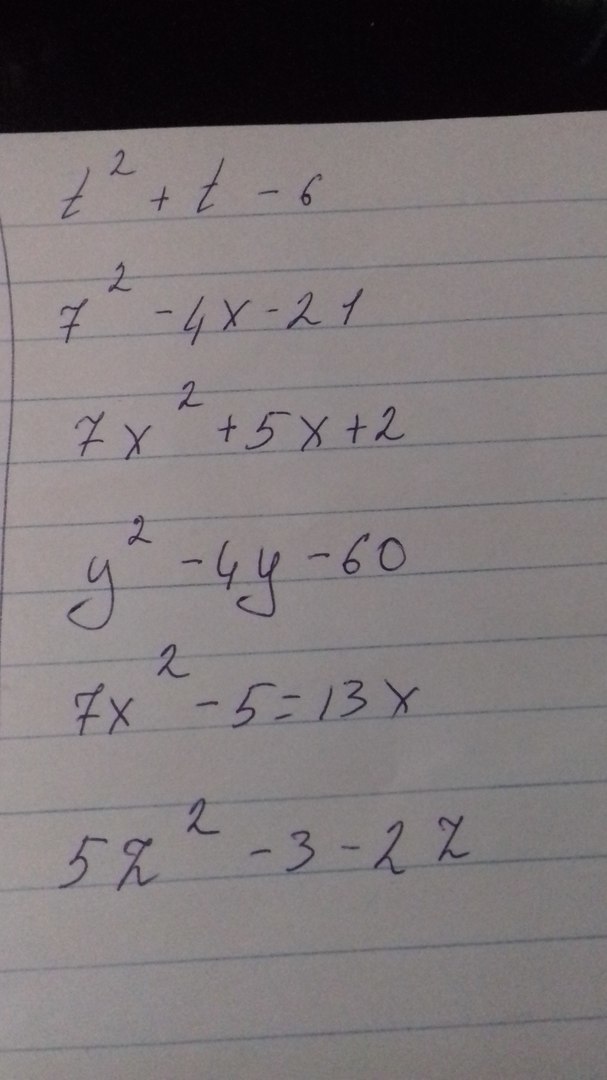 t² + t - 6
7² - 4x - 21
7x² + 5x + 2
y² - 4y - 60
7x² - 5 = 13x
5z² - 3 - 2z